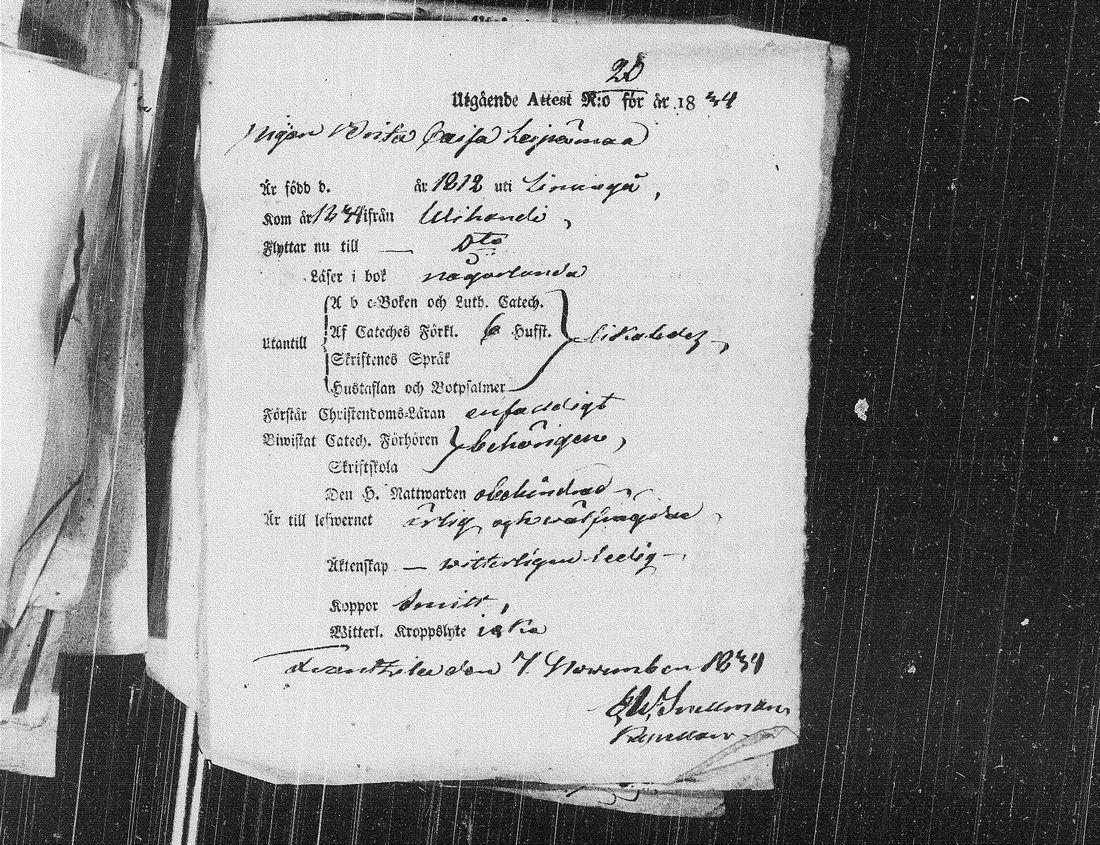 26
Utgående Attest N:o för år 1834
Pigan Brita Caisa Leppämaa
Är född d. år 1812 uti Limingå,
Kom år 1834 ifrån Wihandi,
Flyttar nu till — Dto
Läser i bok någorlunda
A b c-Boken och Luth. Catech.
Utantill Af Cateches Förkl. 6 Hufst. likaledes,
Skriftenes Språk
Hustaflan och Botpsalmer
Förstår Christendoms-Läran enfaldigt
Biwistat Catech. Förhören behörigen,
Skriftskola
Den H. Nattwarden obehindrad,
Är till lefwernet ärlig och wälfrägdad,
Äktenskap — witterligen ledig,
Koppor
Witterl. Kroppslyte icke
Frantsila den 7. November 1834
Snellman,
Kapellan